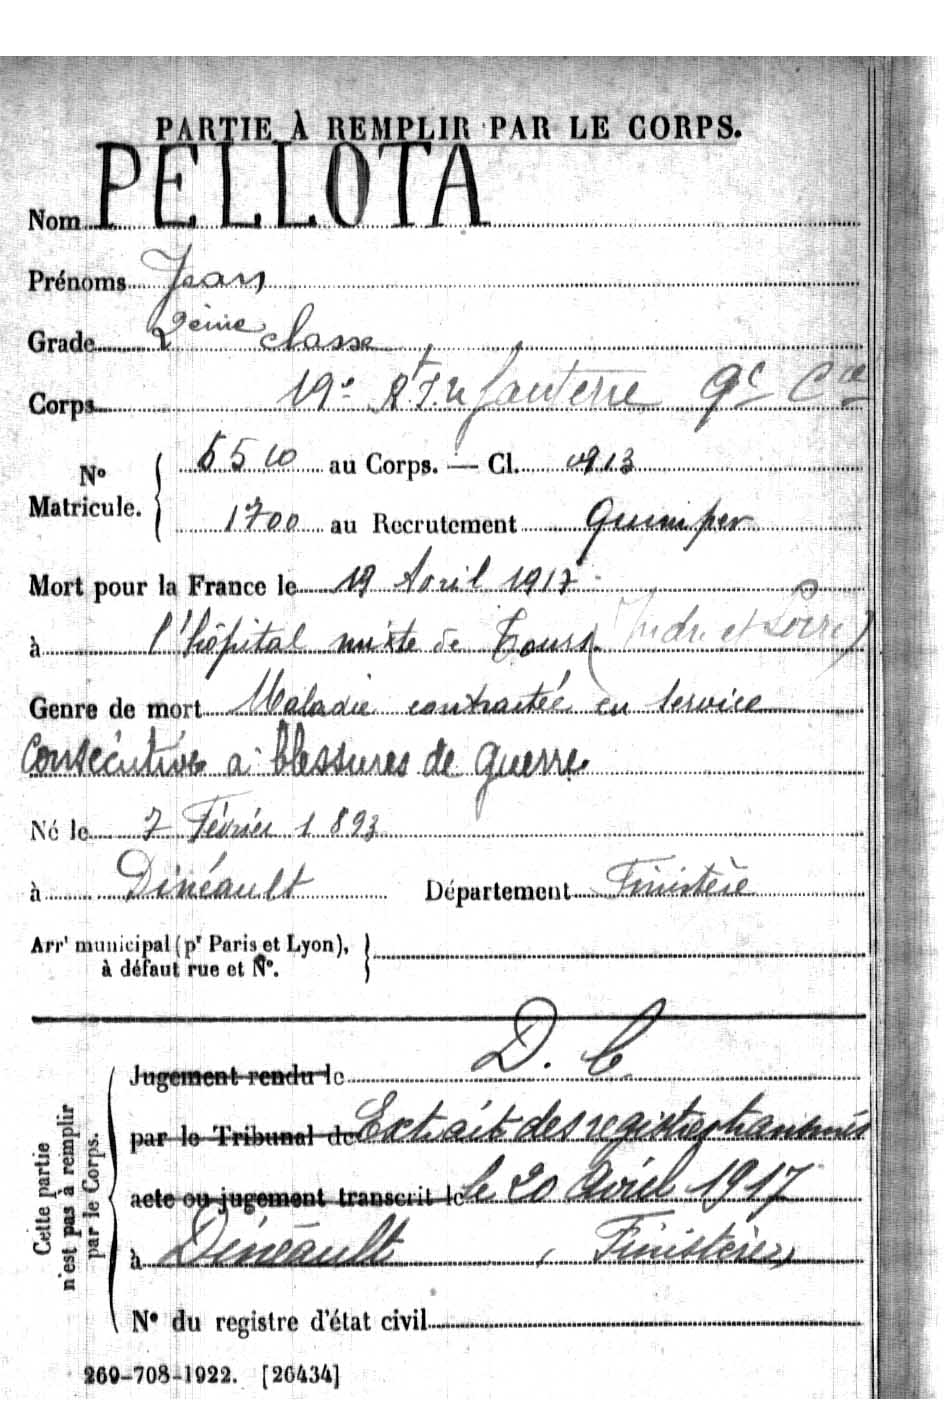 PARTIE À REMPLIR PAR LE CORPS.
Nom PELLOTA
Prénoms Jean
Grade 2ème classe
Corps 19e Rt Infanterie 9e Cie
No Matricule. { 5510 au Corps. — Cl. 1913
1700 au Recrutement Quimper
Mort pour la France le 19 Avril 1917
à l'hôpital mixte de Tours. (Indre et Loire)
Genre de mort Maladie contractée en service
Consécutive à blessures de guerre
Né le 7 Février 1893
à Dinéault Département Finistère
Arrt municipal (pr Paris et Lyon),
à défaut rue et No.
Cette partie
n'est pas à remplir
par le Corps.
Jugement rendu le D. C
par le Tribunal de Extrait des registres transmis
acte ou jugement transcrit le le 20 Avril 1917
à Dinéault, Finistère
No du registre d'état civil
260-708-1922. [26434]